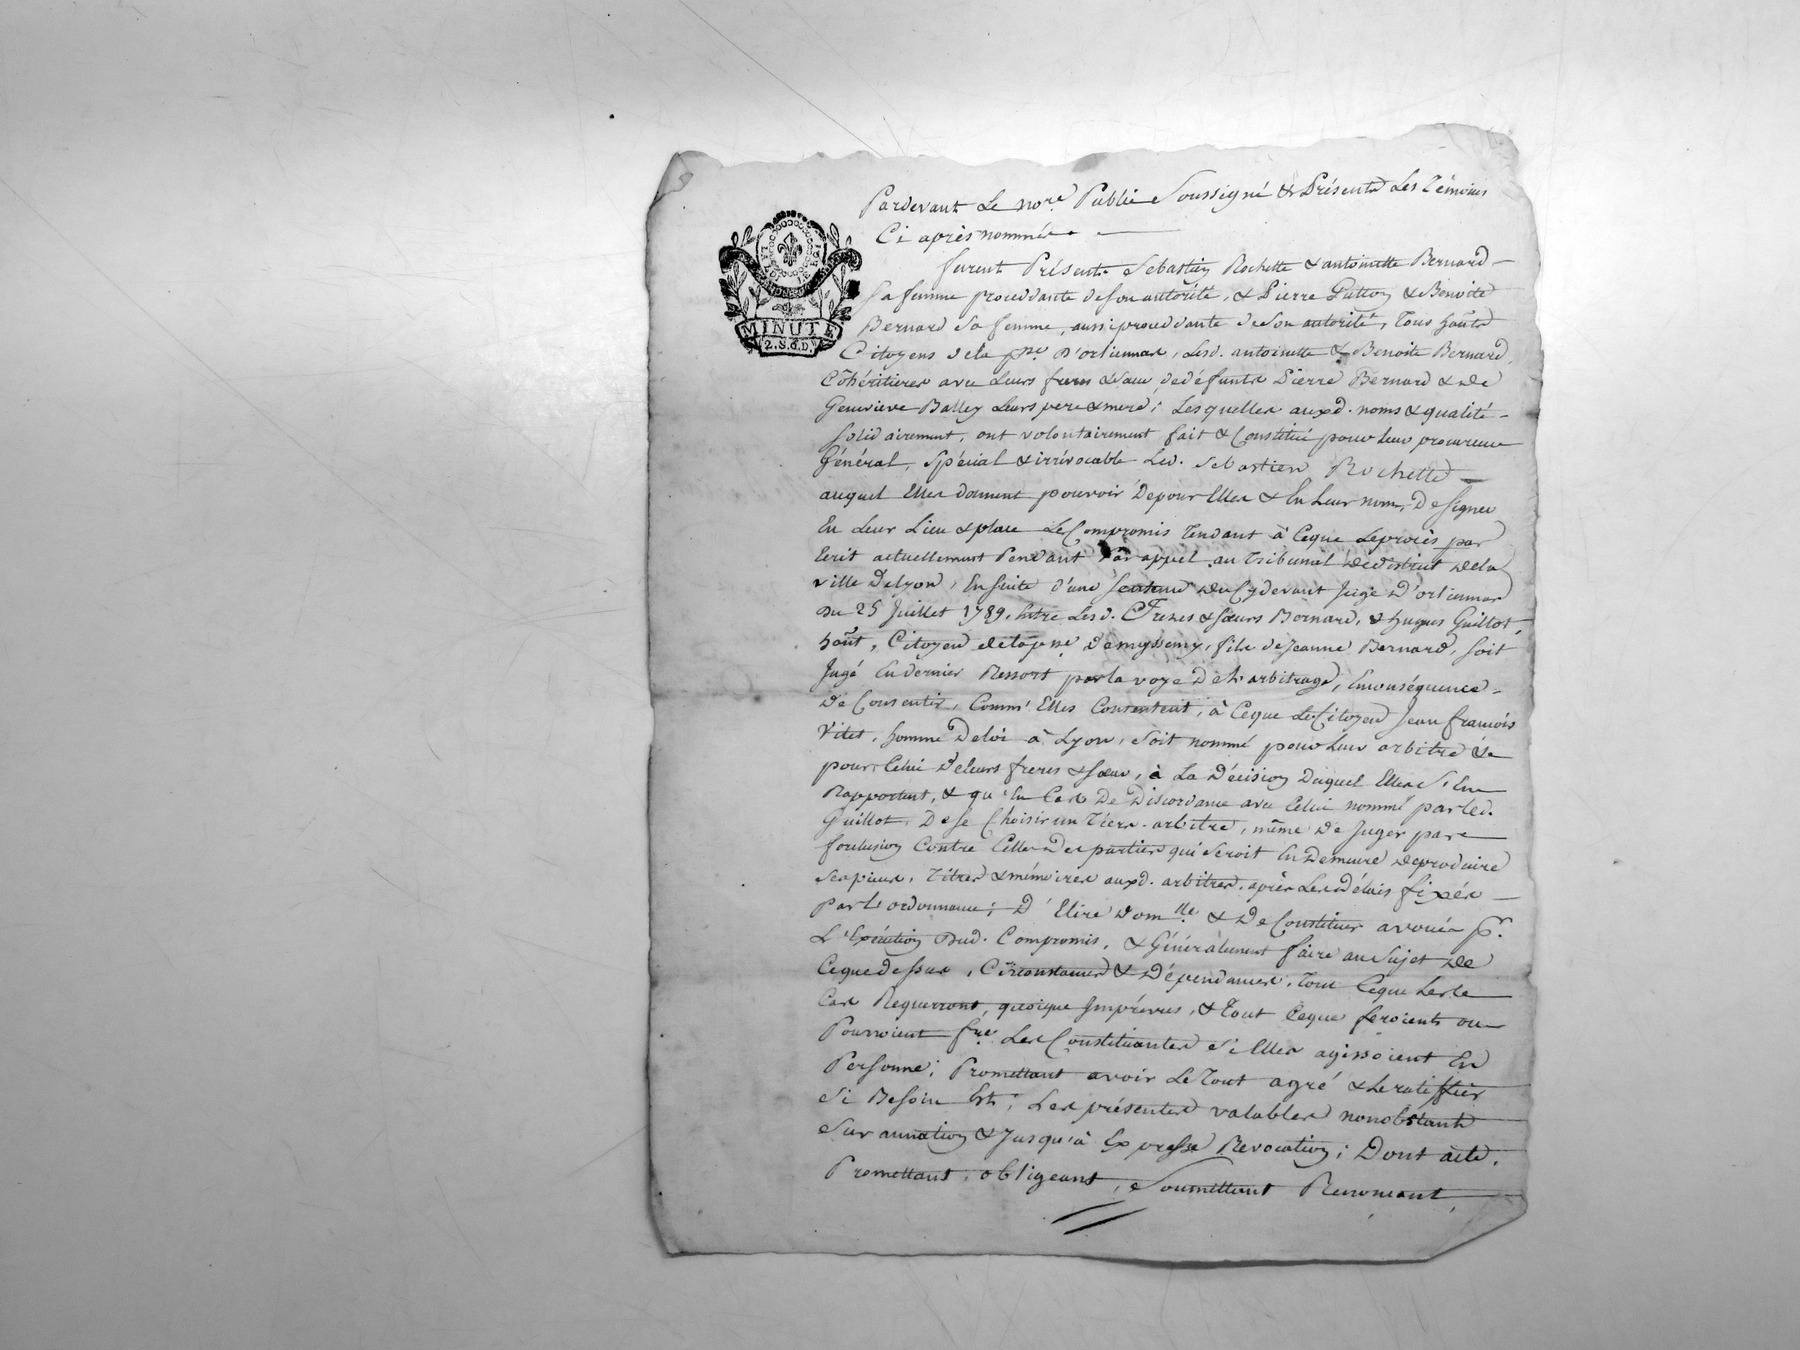 Pardevant Le no.re Public Soussigné & Présents Les Témoins
Ci après nommés.
MINUTE
2.S.6.D.
furent Présents Sebastien Rochette & antoinette Bernard
Sa femme proceddante de son autorité, & Pierre & Benoite
Bernard Sa femme, aussi proceddante de son autorité, Tous
Citoyens dela p.sse D'orliennas, Lesd. antoinette & Benoite Bernard,
Cohéritieres avec Leurs freres & Sœur de défunts Pierre Bernard & de
Genevieve Balley Leurs pere & mere; Lesquelles auxd. noms & qualité
Solidairement, ont volontairement fait & Constitué pour leur procureur
Général, Spécial & irrévocable Led. Sebastien Rochette
auquel Elles donnent pouvoir De pour Elles & En Leur nom, De signer
En Leur Lieu & place Le Compromis Tendant à Ceque Leprocès par
Ecrit actuellement Pendant Par appel au Tribunal de district dela
ville Delyon, En suite d'une Sentence du Cydevant juge D'orliennas
Du 25 Juillet 1789, Entre Lesd. Freres & Sœurs Bernard, & hugues Guillot,
Citoyen dela p.sse fils de Jeanne Bernard, Soit
Jugé En dernier Ressort par la voye De L'arbitrage, En conséquence
De Consentir, Comm' Elles Consentent, à Ceque Le Citoyen Jean françois
Vitet, homme Deloi à Lyon, Soit nommé pour Leur arbitre &
pour Celui De Leurs freres & Sœur, à La Décision Duquel Elles S'En
Rapportent, & qu'En Cas De Discordance avec Celui nommé par led.
Guillot, De se Choisir un Tiers-arbitre, même De Juger par
forclusion Contre Celle Des parties qui Seroit En Demeure deproduire
Ses pieces, Titres & mémoires auxd. arbitres, après Les délais fixés
par L'ordonnance; D'Elire dom.lle & De Constituer avoués p.r
L'Exécution Dud. Compromis, & Généralement faire au Sujet de
Ceque dessus, Circonstances & Dépendances, Tout Ceque Les
Cas Requerront, quoique Imprévus, & Tout Ceque feroient ou
Pourroient f.re Les Constituantes Si Elles agissoient En
Personne; Promettant avoir Le Tout agré & Le ratiffier
Si Besoin Est; Les présentes valables nonobstant
Surannation & Jusqu'à Expresse Revocation; Dont acte.
Promettant, obligeant, Soumettant Renonçant